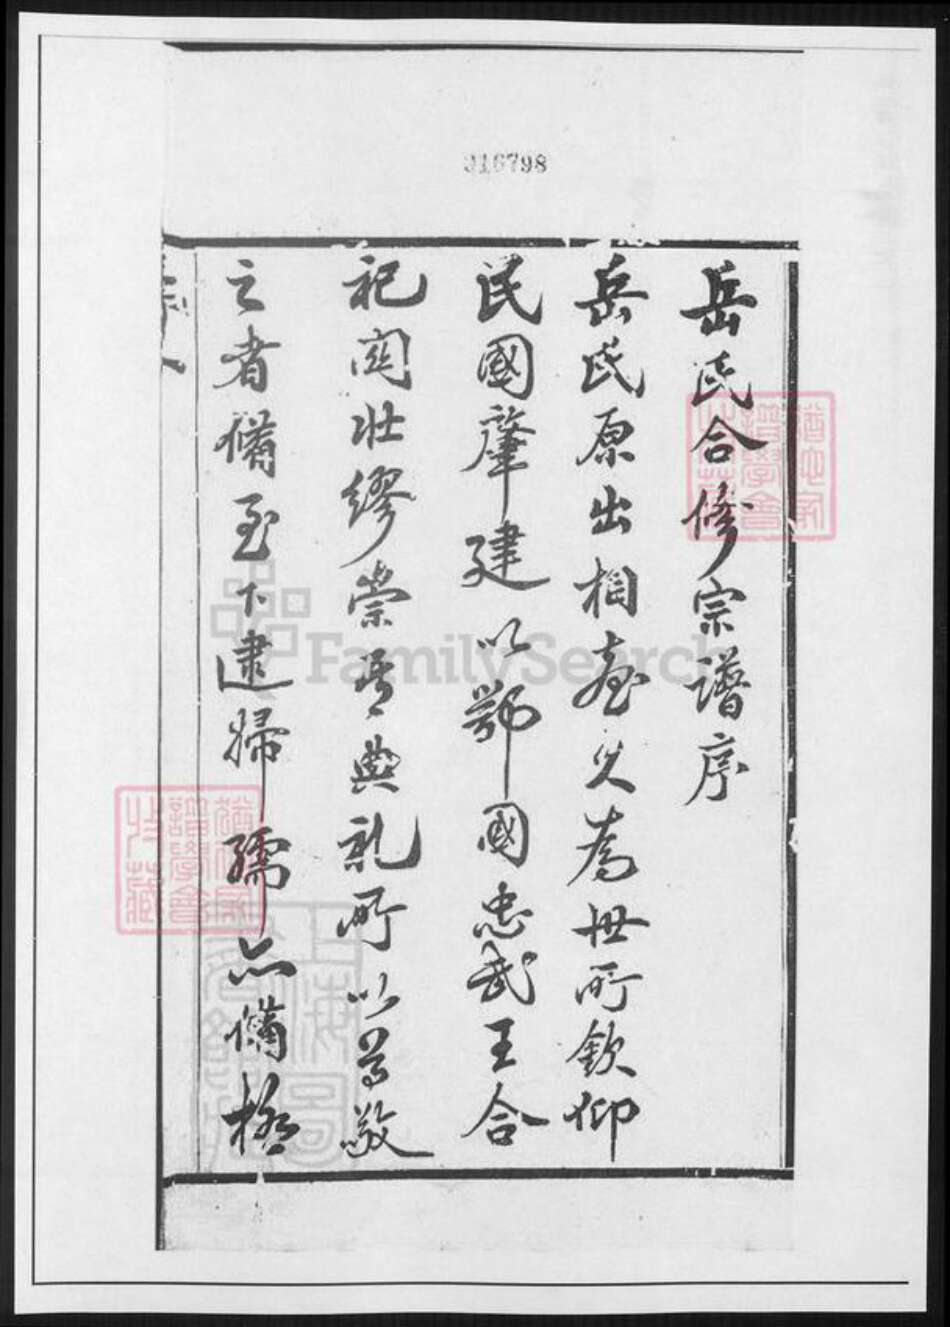 016798
岳氏合修宗譜序
岳氏原出相臺久為世所欽仰
民國肇建以鄂國忠武王合
祀関壯繆崇其典礼所以尊敬
之者備至下逮婦孺亦備極
FamilySearch